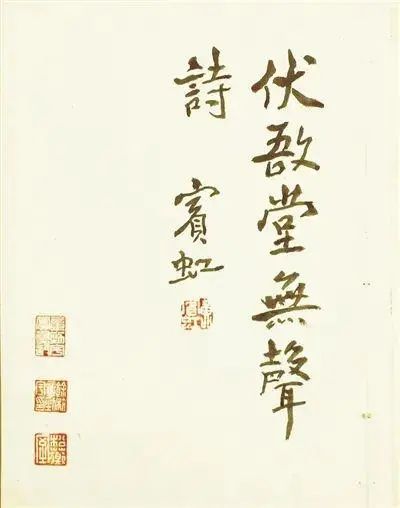 伏敔堂無聲
詩 賓虹